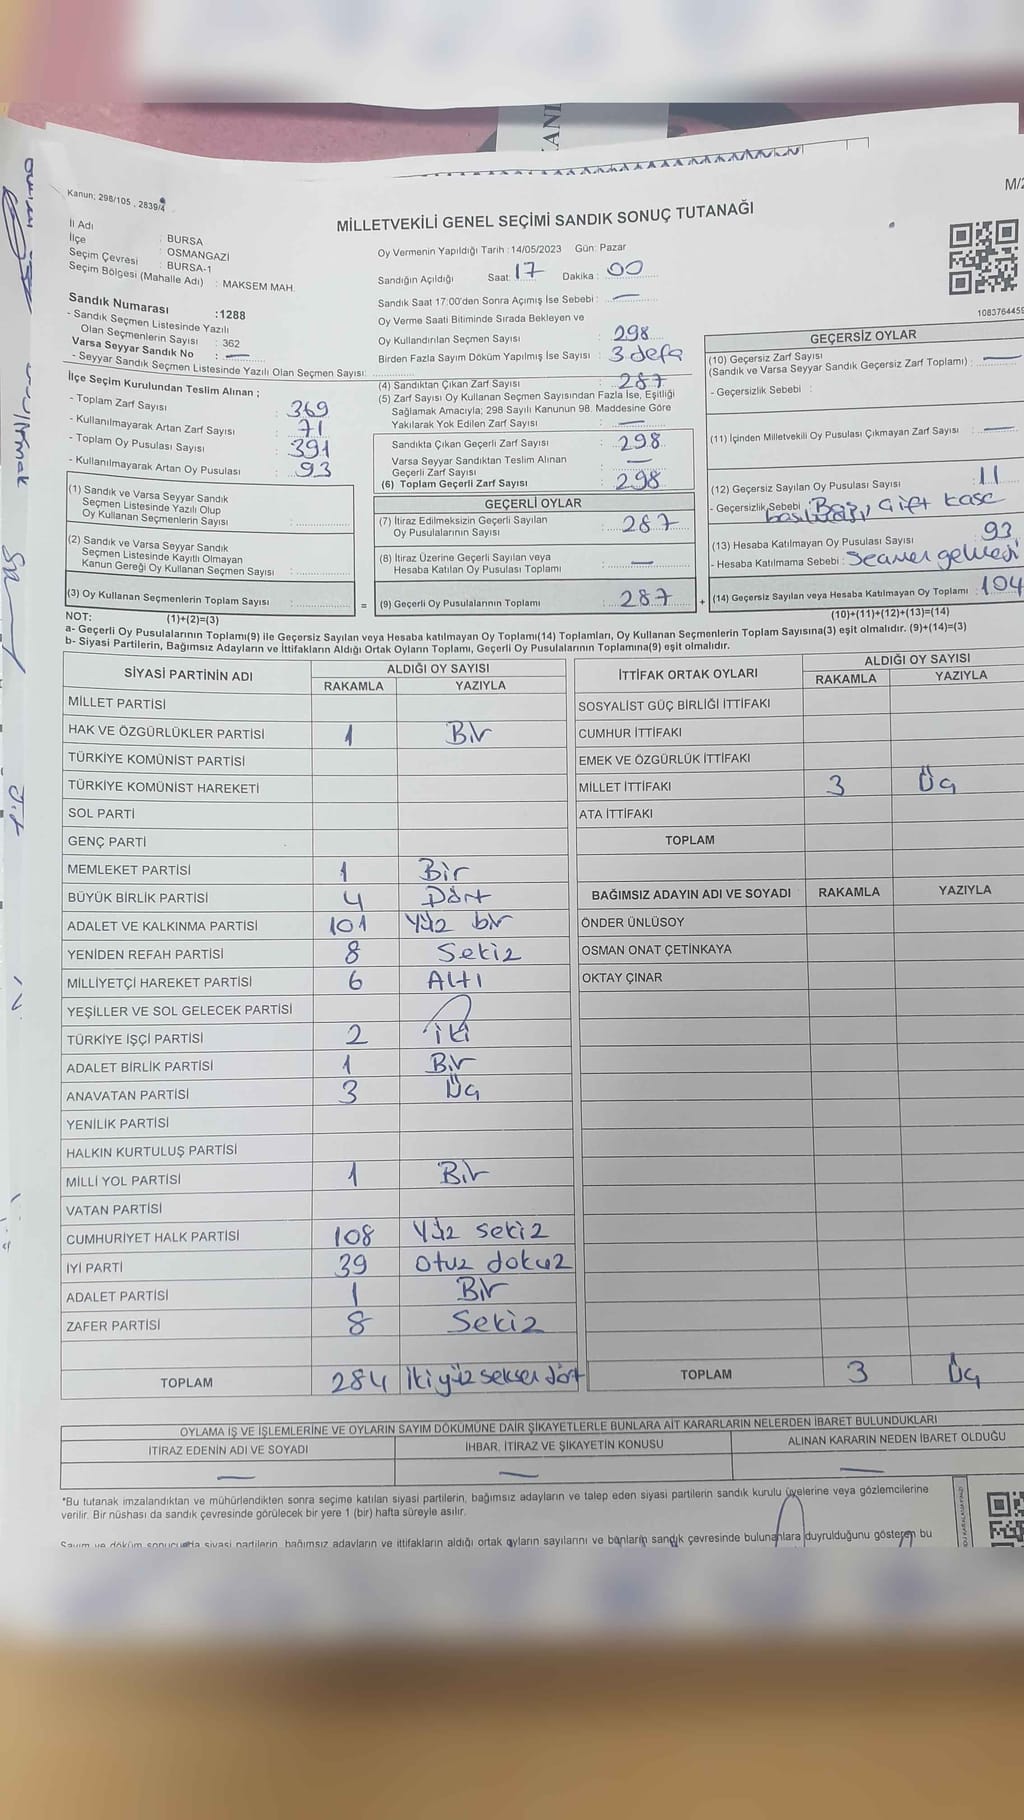 KANI
Kanun; 298/105 , 2839/4
M/2
MİLLETVEKİLİ GENEL SEÇİMİ SANDIK SONUÇ TUTANAĞI
İl Adı : BURSA
İlçe : OSMANGAZİ
Seçim Çevresi : BURSA-1
Seçim Bölgesi (Mahalle Adı) : MAKSEM MAH.
Sandık Numarası :1288
- Sandık Seçmen Listesinde Yazılı
Olan Seçmenlerin Sayısı : 362
Varsa Seyyar Sandık No : —
- Seyyar Sandık Seçmen Listesinde Yazılı Olan Seçmen Sayısı:
İlçe Seçim Kurulundan Teslim Alınan ;
- Toplam Zarf Sayısı : 369
- Kullanılmayarak Artan Zarf Sayısı : 71
- Toplam Oy Pusulası Sayısı : 391
- Kullanılmayarak Artan Oy Pusulası : 93
(1) Sandık ve Varsa Seyyar Sandık
Seçmen Listesinde Yazılı Olup
Oy Kullanan Seçmenlerin Sayısı :
(2) Sandık ve Varsa Seyyar Sandık
Seçmen Listesinde Kayıtlı Olmayan
Kanun Gereği Oy Kullanan Seçmen Sayısı :
(3) Oy Kullanan Seçmenlerin Toplam Sayısı : =
Oy Vermenin Yapıldığı Tarih : 14/05/2023 Gün: Pazar
Sandığın Açıldığı Saat: 17 Dakika : 00
Sandık Saat 17:00'den Sonra Açımış İse Sebebi : —
Oy Verme Saati Bitiminde Sırada Bekleyen ve
Oy Kullandırılan Seçmen Sayısı : 298
Birden Fazla Sayım Döküm Yapılmış İse Sayısı : 3 defa
(4) Sandıktan Çıkan Zarf Sayısı : 287
(5) Zarf Sayısı Oy Kullanan Seçmen Sayısından Fazla İse, Eşitliği
Sağlamak Amacıyla; 298 Sayılı Kanunun 98. Maddesine Göre
Yakılarak Yok Edilen Zarf Sayısı : —
Sandıkta Çıkan Geçerli Zarf Sayısı : 298
Varsa Seyyar Sandıktan Teslim Alınan
Geçerli Zarf Sayısı : —
(6) Toplam Geçerli Zarf Sayısı : 298
GEÇERLİ OYLAR
(7) İtiraz Edilmeksizin Geçerli Sayılan
Oy Pusulalarının Sayısı : 287
(8) İtiraz Üzerine Geçerli Sayılan veya
Hesaba Katılan Oy Pusulası Toplamı : —
(9) Geçerli Oy Pusulalarının Toplamı : 287 +
1083764459
GEÇERSİZ OYLAR
(10) Geçersiz Zarf Sayısı
(Sandık ve Varsa Seyyar Sandık Geçersiz Zarf Toplamı) : —
- Geçersizlik Sebebi :
(11) İçinden Milletvekili Oy Pusulası Çıkmayan Zarf Sayısı : —
(12) Geçersiz Sayılan Oy Pusulası Sayısı : 11
- Geçersizlik Sebebi : çift kaşe
(13) Hesaba Katılmayan Oy Pusulası Sayısı : 93
- Hesaba Katılmama Sebebi :
(14) Geçersiz Sayılan veya Hesaba Katılmayan Oy Toplamı : 104
NOT: (1)+(2)=(3) (10)+(11)+(12)+(13)=(14)
a- Geçerli Oy Pusulalarının Toplamı(9) ile Geçersiz Sayılan veya Hesaba katılmayan Oy Toplamı(14) Toplamları, Oy Kullanan Seçmenlerin Toplam Sayısına(3) eşit olmalıdır. (9)+(14)=(3)
b- Siyasi Partilerin, Bağımsız Adayların ve İttifakların Aldığı Ortak Oyların Toplamı, Geçerli Oy Pusulalarının Toplamına(9) eşit olmalıdır.
SİYASİ PARTİNİN ADI ALDIĞI OY SAYISI
RAKAMLA YAZIYLA
MİLLET PARTİSİ
HAK VE ÖZGÜRLÜKLER PARTİSİ 1 Bir
TÜRKİYE KOMÜNİST PARTİSİ
TÜRKİYE KOMÜNİST HAREKETİ
SOL PARTİ
GENÇ PARTİ
MEMLEKET PARTİSİ 1 Bir
BÜYÜK BİRLİK PARTİSİ 4 Dört
ADALET VE KALKINMA PARTİSİ 101 Yüz bir
YENİDEN REFAH PARTİSİ 8 Sekiz
MİLLİYETÇİ HAREKET PARTİSİ 6 Altı
YEŞİLLER VE SOL GELECEK PARTİSİ
TÜRKİYE İŞÇİ PARTİSİ 2 iki
ADALET BİRLİK PARTİSİ 1 Bir
ANAVATAN PARTİSİ 3 Üç
YENİLİK PARTİSİ
HALKIN KURTULUŞ PARTİSİ
MİLLİ YOL PARTİSİ 1 Bir
VATAN PARTİSİ
CUMHURİYET HALK PARTİSİ 108 Yüz sekiz
İYİ PARTİ 39 otuz dokuz
ADALET PARTİSİ 1 Bir
ZAFER PARTİSİ 8 Sekiz
TOPLAM 284 iki yüz seksen dört
İTTİFAK ORTAK OYLARI ALDIĞI OY SAYISI
RAKAMLA YAZIYLA
SOSYALİST GÜÇ BİRLİĞİ İTTİFAKI
CUMHUR İTTİFAKI
EMEK VE ÖZGÜRLÜK İTTİFAKI
MİLLET İTTİFAKI 3 Üç
ATA İTTİFAKI
TOPLAM
BAĞIMSIZ ADAYIN ADI VE SOYADI RAKAMLA YAZIYLA
ÖNDER ÜNLÜSOY
OSMAN ONAT ÇETİNKAYA
OKTAY ÇINAR
TOPLAM 3 Üç
OYLAMA İŞ VE İŞLEMLERİNE VE OYLARIN SAYIM DÖKÜMÜNE DAİR ŞİKAYETLERLE BUNLARA AİT KARARLARIN NELERDEN İBARET BULUNDUKLARI
İTİRAZ EDENİN ADI VE SOYADI İHBAR, İTİRAZ VE ŞİKAYETİN KONUSU ALINAN KARARIN NEDEN İBARET OLDUĞU
— — —
*Bu tutanak imzalandıktan ve mühürlendikten sonra seçime katılan siyasi partilerin, bağımsız adayların ve talep eden siyasi partilerin sandık kurulu üyelerine veya gözlemcilerine
verilir. Bir nüshası da sandık çevresinde görülecek bir yere 1 (bir) hafta süreyle asılır.
Sayım ve döküm sonucunda siyasi partilerin, bağımsız adayların ve ittifakların aldığı ortak oyların sayılarını ve bunların sandık çevresinde bulunanlara duyrulduğunu gösteren bu